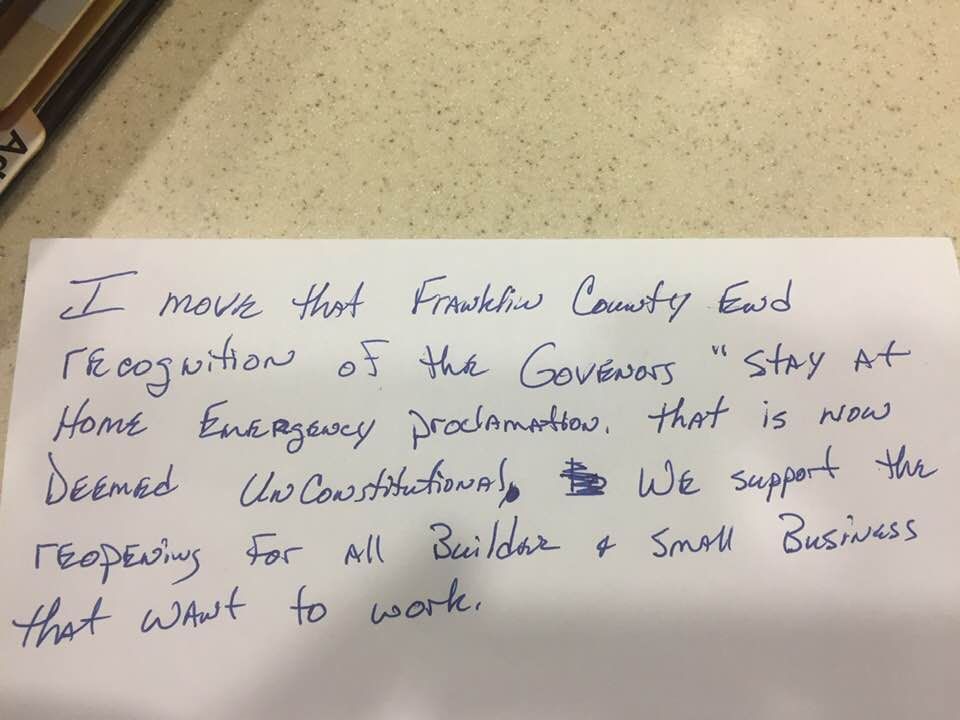 Ad
I move that Franklin County End
recognition of the Govenors "Stay At
Home Emergency proclamation. that is now
Deemed UnConstitutional. We support the
reopening for all Builder & Small Business
that want to work.